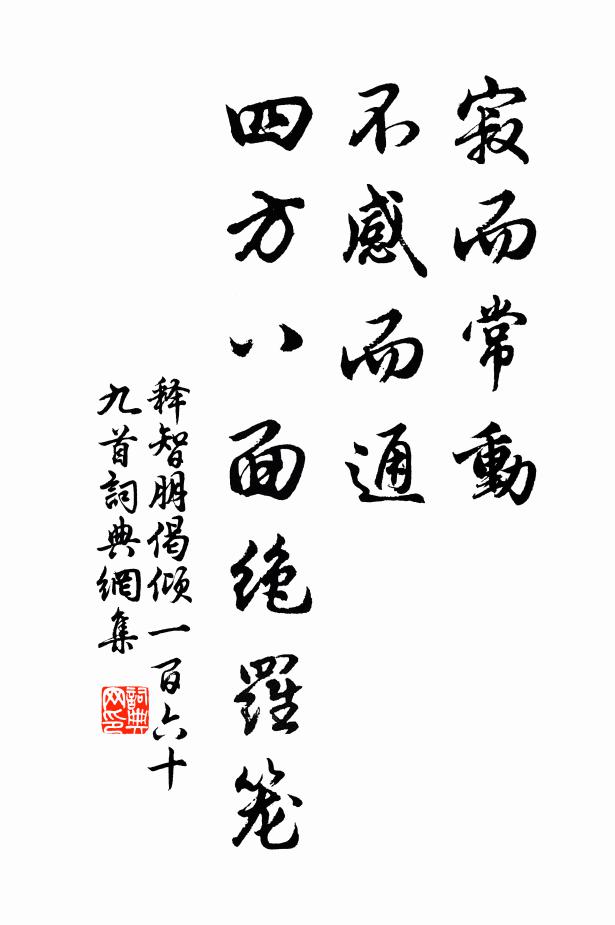 寂而常動
不感而通
四方八面絶羅笼
释智朋偈倾一百六十
九首詞典網集
詞典网印